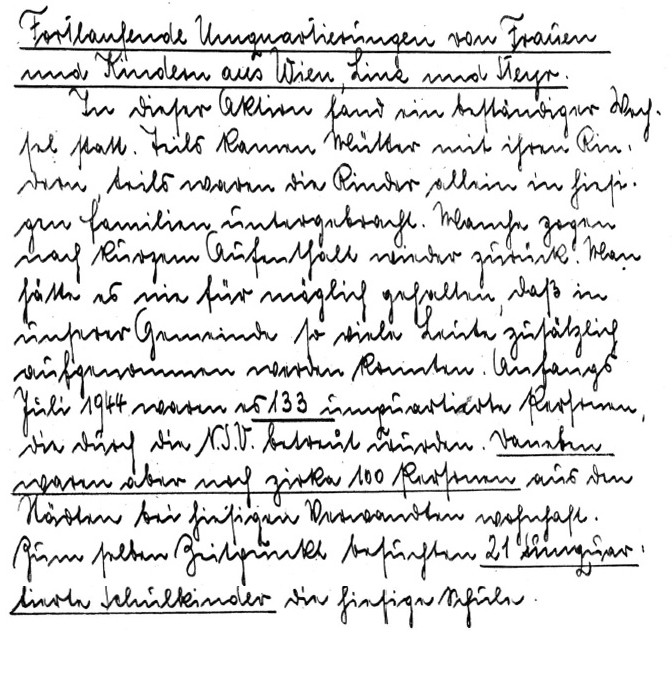 Fortlaufende Umquartierungen von Frauen
und Kindern aus Wien, Linz und Steyr.
In dieser Aktion fand ein beständiger Wech-
sel statt. Teils kamen Mütter mit ihren Kin-
dern, teils waren die Kinder allein in hiesi-
gen Familien untergebracht. Manche zogen
nach kurzem Aufenthalt wieder zurück. Man
hätte es nie für möglich gehalten, daß in
unserer Gemeinde so viele Leute zusätzlich
aufgenommen werden konnten. Anfangs
Juli 1944 waren es 133 umquartierte Personen,
die durch die N.S.V. betreut wurden. Daneben
waren aber noch zirka 100 Personen aus den
Städten bei hiesigen Verwandten wohnhaft.
Zum selben Zeitpunkt besuchten 21 umquar-
tierte Schulkinder die hiesige Schule.